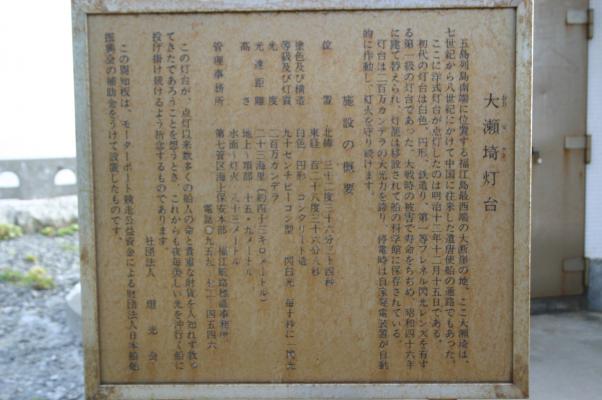 大瀬埼灯台
五島列島南端に位置する福江島最西端の大断崖の地、ここ大瀬埼は、
七世紀から八世紀にかけて中国に往来した遣唐使船の通路でもあった。
ここに洋式灯台が点灯したのは明治十二年十二月十五日である。
初代の灯台は白色、円形、鉄造り、第一等フレネル閃光レンズを有す
る第一級の灯台であった。大戦時の被害で寿命をちぢめ、昭和四十六年
に建て替えられ、灯籠は移設されて船の科学館に保存されている。
灯台は二百万カンデラの大光力を誇り、停電時は自家発電装置が自動
的に作動し、灯火を守り続けます。
施設の概要
位置 北緯 三十二度三十六分三十四秒
東経 百二十八度三十六分八秒
塗色及び構造 白色、円形、コンクリート造
等級及び灯質 九十センチビーコン型 閃白光 毎十秒に一閃光
光度 二百万カンデラ
光達距離 二十三海里(約四十三キロメートル)
高さ 地上〜頂部 十五・九メートル
水面〜灯火 八十三メートル
管理事務所 第七管区海上保安本部 福江航路標識事務所
電話 ○九五九
この灯台が、点灯以来数多くの船人の命と貴重な財貨を人知れず救っ
てきたであろうことを想うとき、これからも夜毎美しい光を沖行く船に
投げ掛け続けるよう祈念するものであります。
社団法人 燈光会
この周知板は、モーターボート競走公益資金による財団法人日本船舶
振興会の補助金をうけて設置したものです。